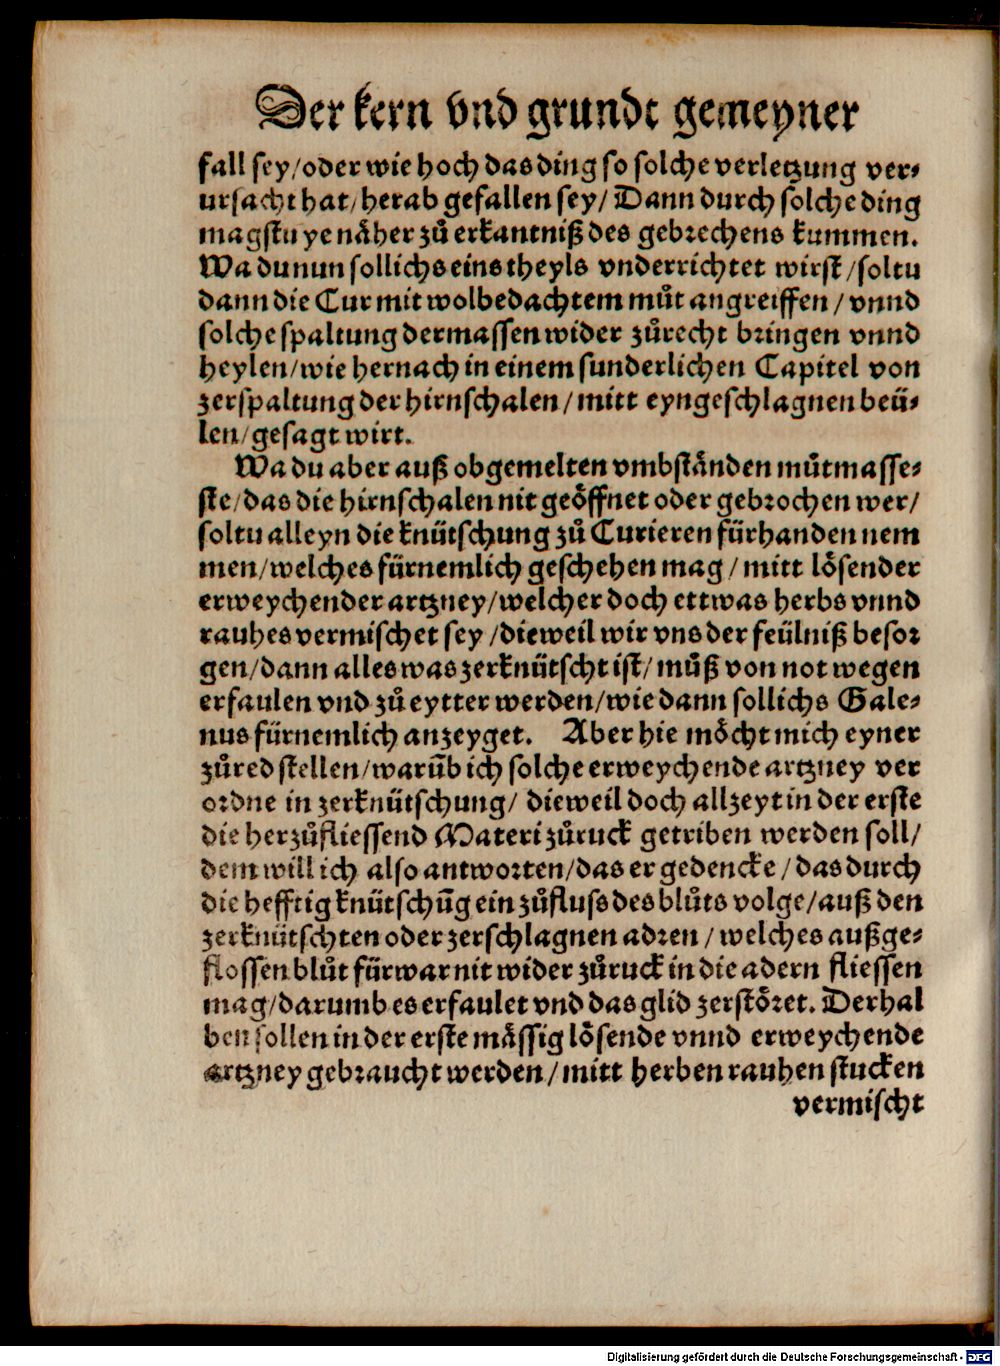 Der kern vnd grundt gemeyner
fall sey/oder wie hoch das ding so solche verletzung ver⸗
ursacht hat/herab gefallen sey/ Dann durch solche ding
magstu ye näher zů erkantniß des gebrechens kummen.
Wa du nun sollichs eins theyls vnderrichtet wirst/soltu
dann die Cur mit wolbedachtem můt angreiffen/vnnd
solche spaltung dermassen wider zůrecht bringen vnnd
heylen/wie hernach in einem sunderlichen Capitel von
zerspaltung der hirnschalen/mitt eyngeschlagnen beü⸗
len/gesagt wirt.
Wa du aber auß obgemelten vmbständen můtmasse⸗
ste/das die hirnschalen nit geöffnet oder gebrochen wer/
soltu alleyn die knütschung zů Curieren fürhanden nem
men/welches fürnemlich geschehen mag/mitt lösender
erweychender artzney/welcher doch ettwas herbs vnnd
rauhes vermischet sey/dieweil wir vns der feülniß besor
gen/dann alles was zerknütscht ist/můß von not wegen
erfaulen vnd zů eytter werden/wie dann sollichs Gale⸗
nus fürnemlich anzeyget. Aber hie möcht mich eyner
zůred stellen/warūb ich solche erweychende artzney ver
ordne in zerknütschung/ dieweil doch allzeyt in der erste
die herzůfliessend Materi zůruck getriben werden soll/
dem will ich also antworten/das er gedencke/das durch
die hefftig knütschūg ein zůfluss des blůts volge/auß den
zerknütschten oder zerschlagnen adren/welches außge⸗
flossen blůt fürwar nit wider zůruck in die adern fliessen
mag/darumb es erfaulet vnd das glid zerstöret. Derhal
ben sollen in der erste mässig lösende vnnd erweychende
artzney gebraucht werden/mitt herben rauhen stucken
vermischt
Digitalisierung gefördert durch die Deutsche Forschungsgemeinschaft - DFG